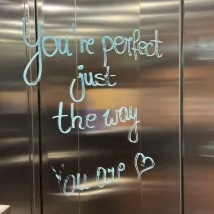 You're perfect
just
the way
You are ♡